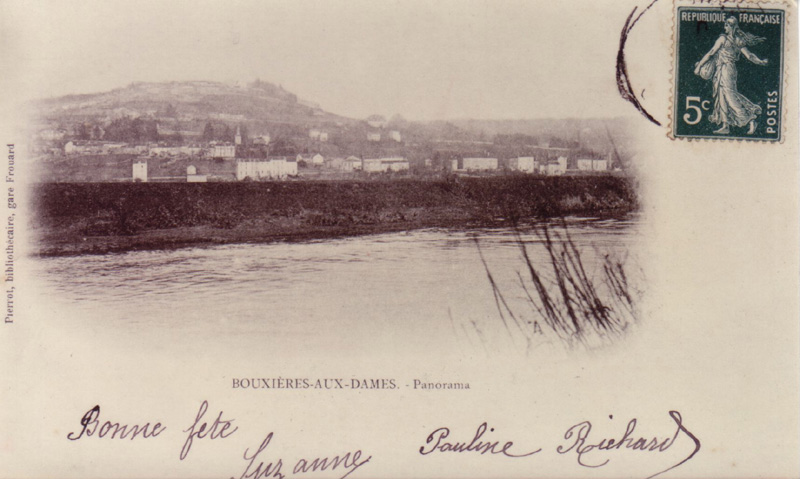 REPUBLIQUE FRANÇAISE
5c
POSTES
Pierrot, bibliothécaire, gare Frouard
BOUXIÈRES-AUX-DAMES. - Panorama
Bonne fête
Suzanne
Pauline Richard